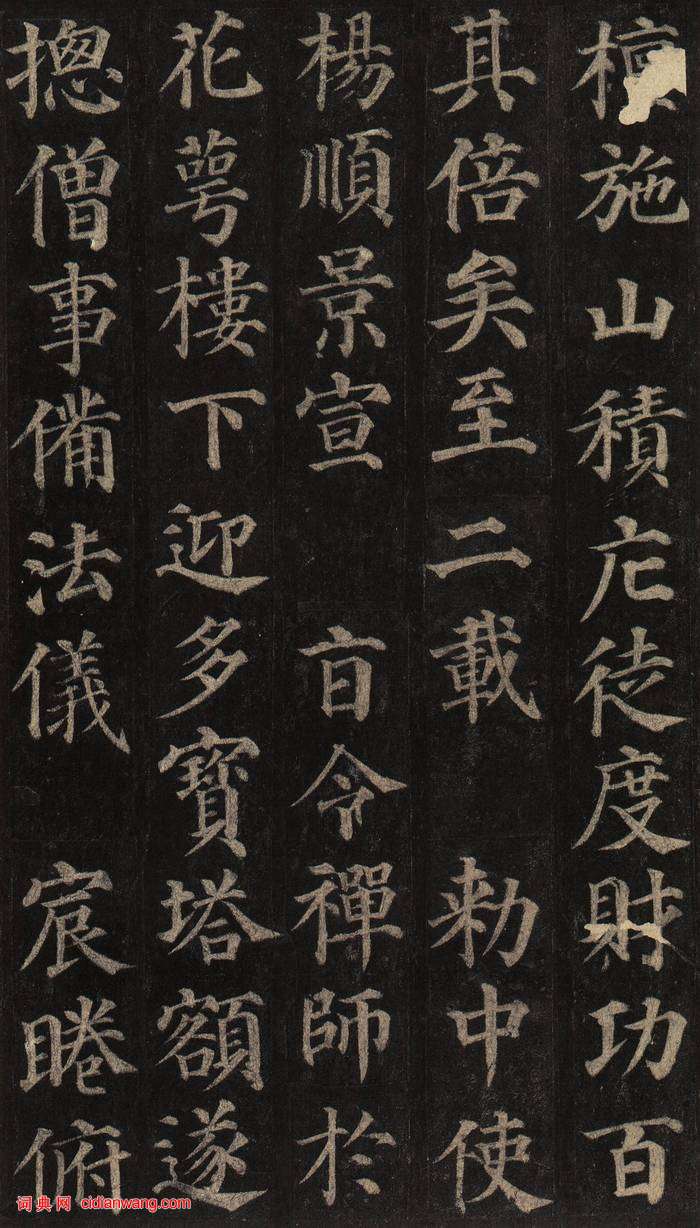 檀施山積庀徒度財功百
其倍矣至二載 勅中使
楊順景宣 旨令禪師於
花萼樓下迎多寶塔額遂
摠僧事備法儀 宸睠俯
词典网 cidianwang.com